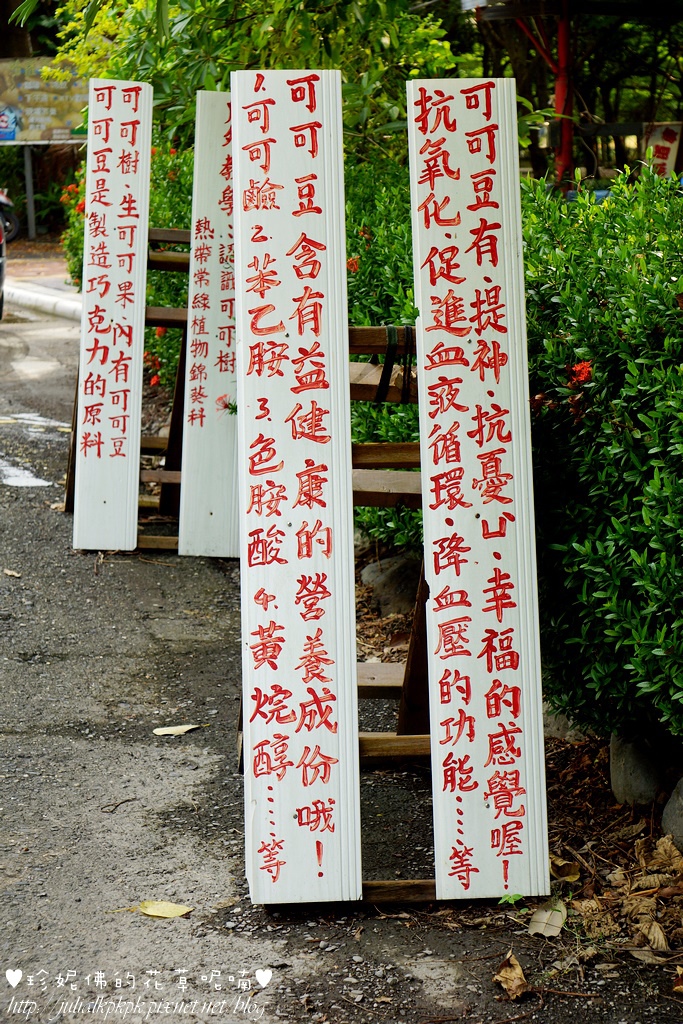 可可豆有、提神、抗憂ㄩˋ、幸福的感覺喔!
抗氧化、促進血液循環、降血壓的功能……等
可可豆含有益健康的營養成份哦!
1.可可鹼 2.苯乙胺 3.色胺酸 4.黃烷醇……等
教學:認識可可樹
熱帶常綠植物錦葵科
可可樹、生可可果、內有可可豆
可可豆是製造巧克力的原料
♥珍妮佛的花草呢喃♥
http://julialkpkpk.pixnet.net/blog